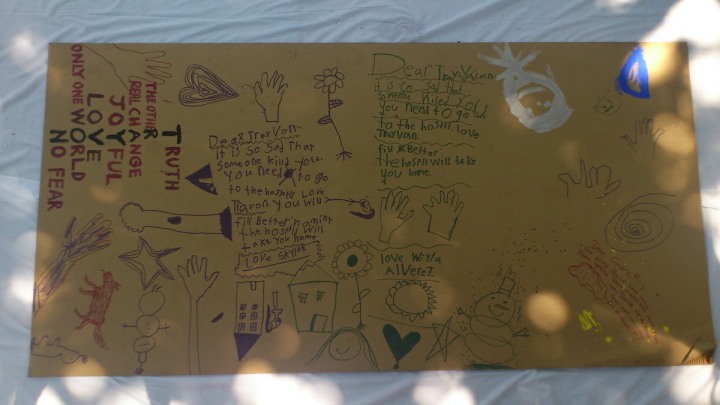 THE OTHER
REAL CHANGE
JOYFUL
LOVE
ONLY ONE WORLD
NO FEAR
TRUTH
Dear Trayvon
it is so sad that
someone kild you.
you need to go
to the hospitl love
Travon you will
fill Better
the hospitl will
take you home
LOVE SKYLAR
Dear Trayvon
it is so sad that
someone killed you
you need to go
to the hospitl love
Travon
fill Better
the hospitl will take
you home
love Keyla
Alverez